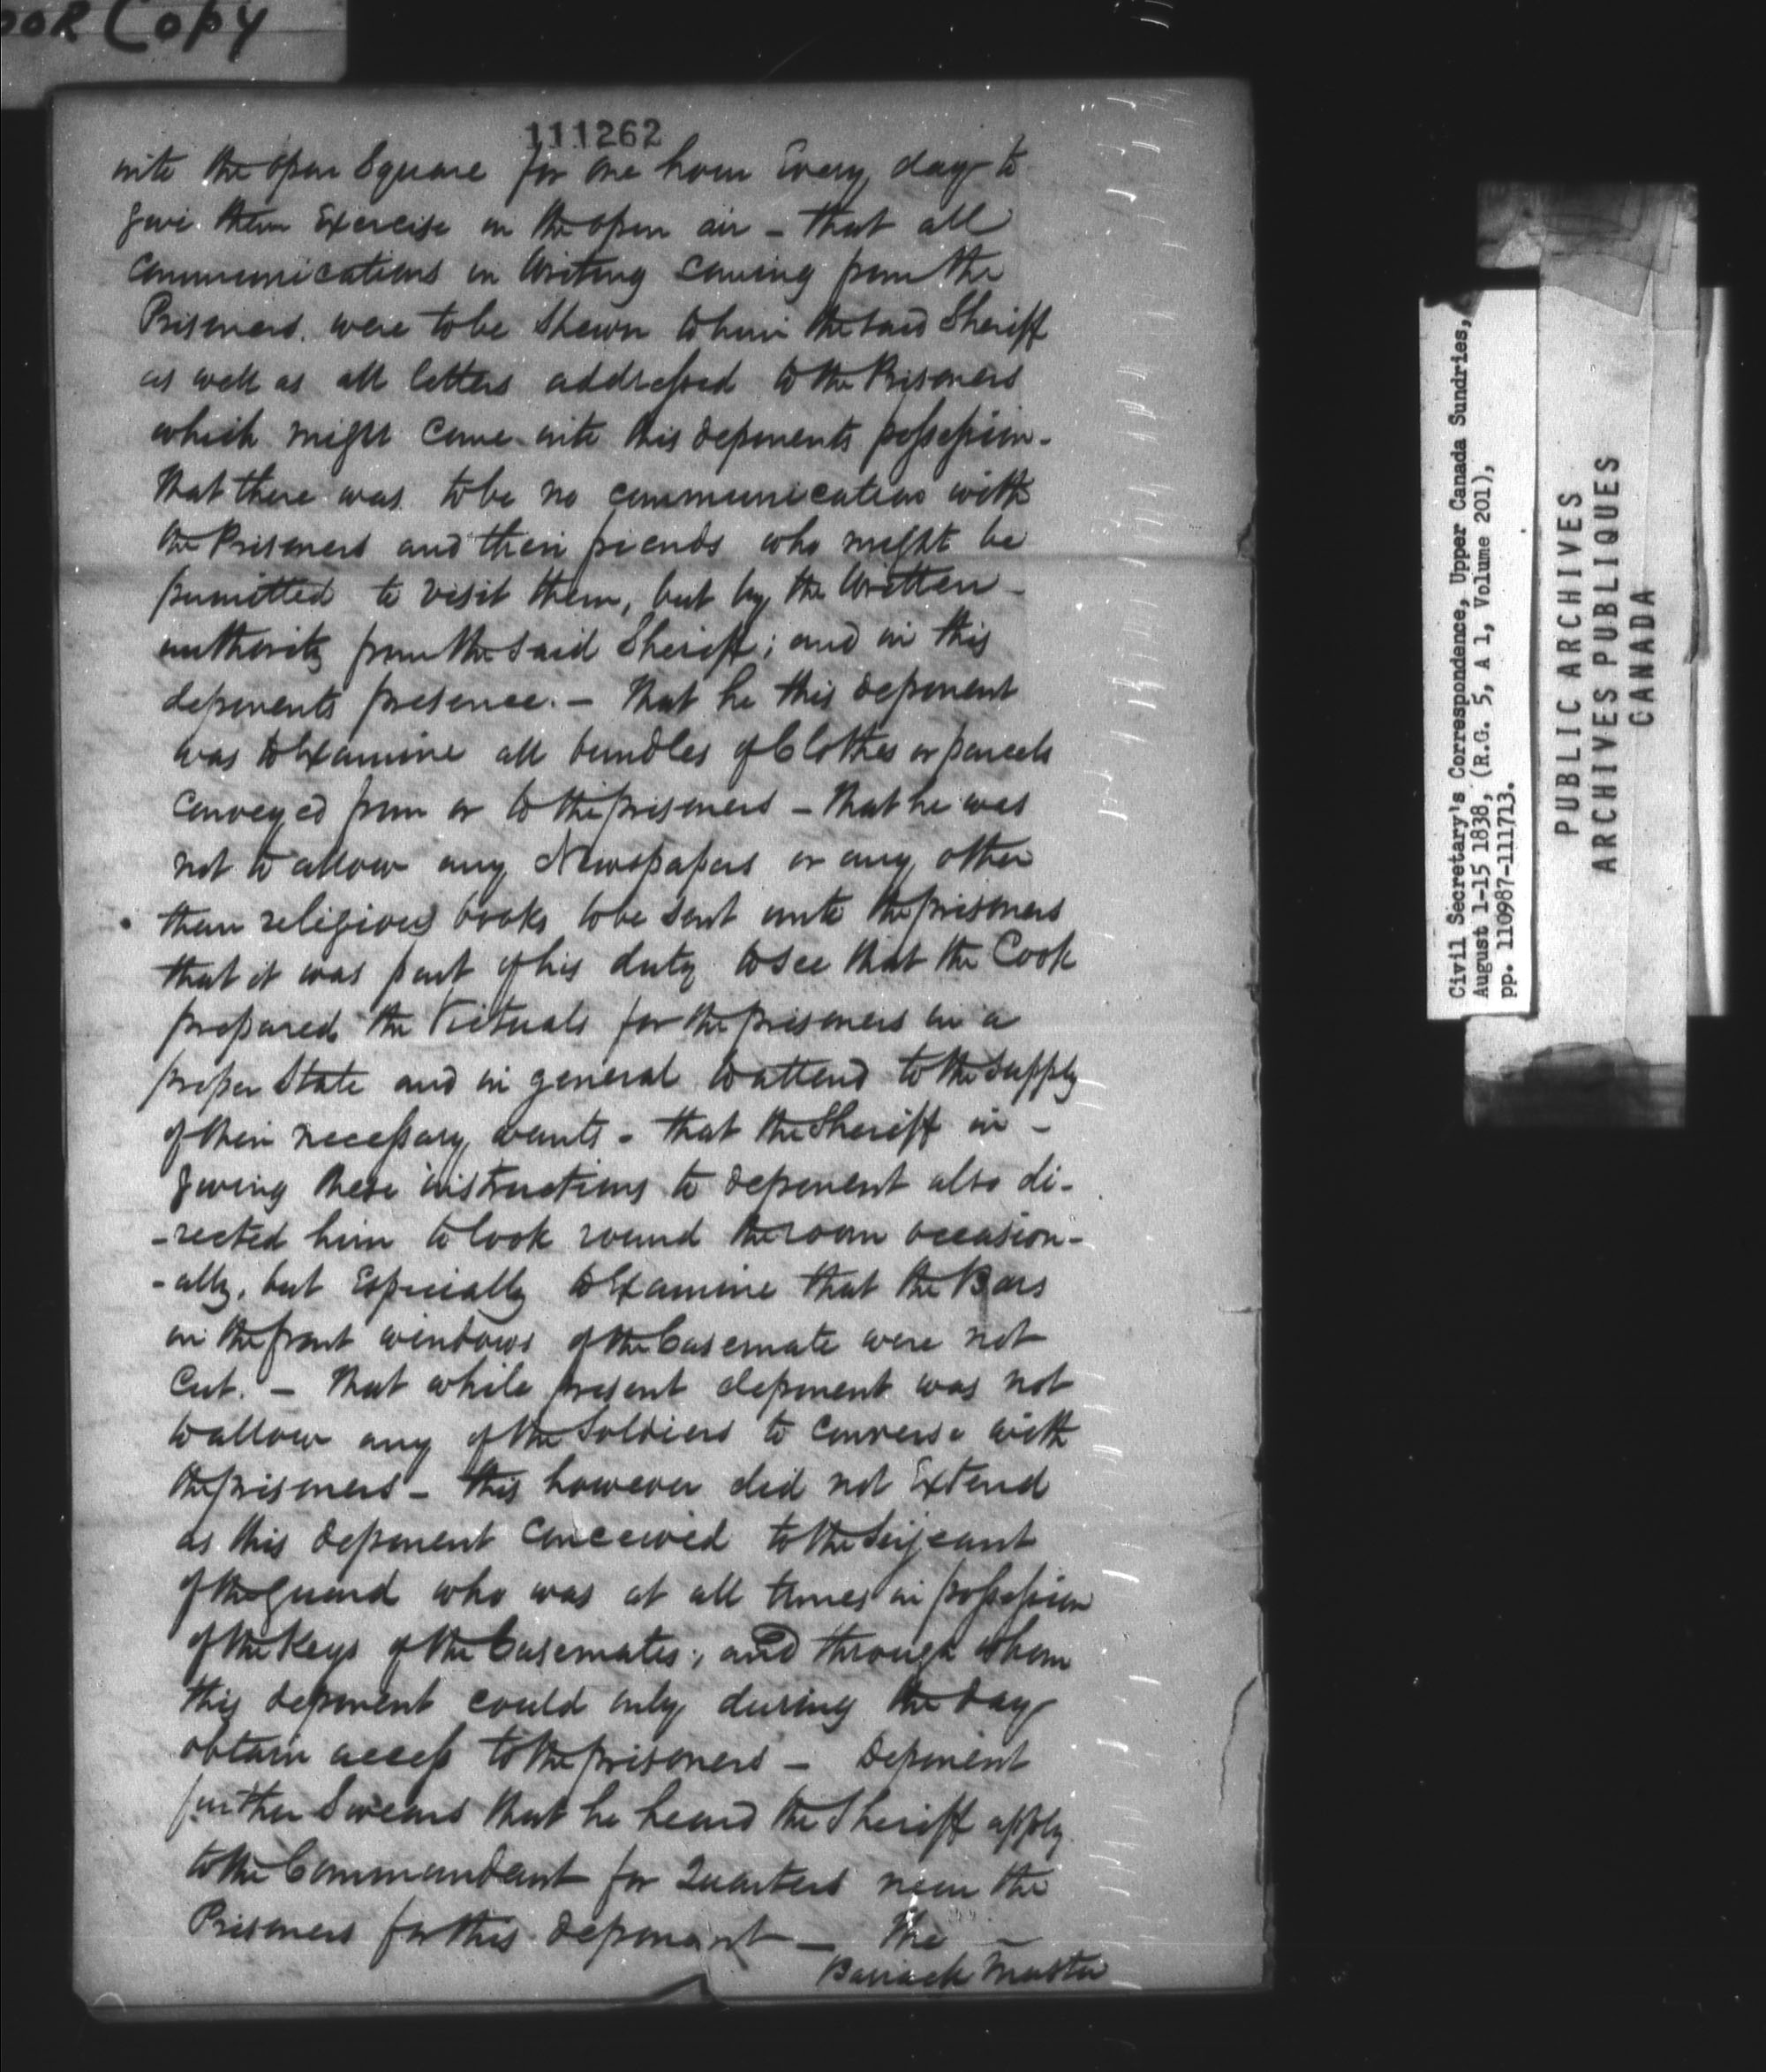 OOR Copy
111262
into the open Square for one hour Every day to
give them Exercise in the open air – that all
communications in Writing coming from the
Prisoners were to be Shewn to him the said Sheriff
as well as all letters addressed to the Prisoners
which might come into this deponents possession.
That there was to be no communication with
the Prisoners and their friends who might be
permitted to visit them, but by the Written –
authority from the said Sheriff; and in this
deponents presence. – That he this deponent
was to Examine all bundles of Clothes or parcels
conveyed from or to the prisoners – that he was
not to allow any Newspapers or any other
than religious books to be sent unto the prisoners
that it was part of his duty to see that the Cook
prepared the Victuals for the prisoners in a
proper State and in general to attend to the supply
of their necessary wants – that the Sheriff in –
giving these instructions to deponent also di-
-rected him to look round the room occasion-
-ally, but Especially to Examine that the Bars
in the front windows of the Casemate were not
Cut. – That while present deponent was not
to allow any of the Soldiers to converse with
the prisoners – this however did not Extend
as this deponent conceived to the Serjeant
of the Guard who was at all times in possession
of the Keys of the Casemates; and through whom
this deponent could only during the day
obtain access to the prisoners – Deponent
further Swears that he heard the Sheriff apply
to the Commandant for Quarters near the
Prisoners for this deponent – The –
Barrack Master
Civil Secretary's Correspondence, Upper Canada Sundries,
August 1-15 1838, (R.G. 5, A 1, Volume 201),
pp. 110987-111713.
PUBLIC ARCHIVES
ARCHIVES PUBLIQUES
CANADA